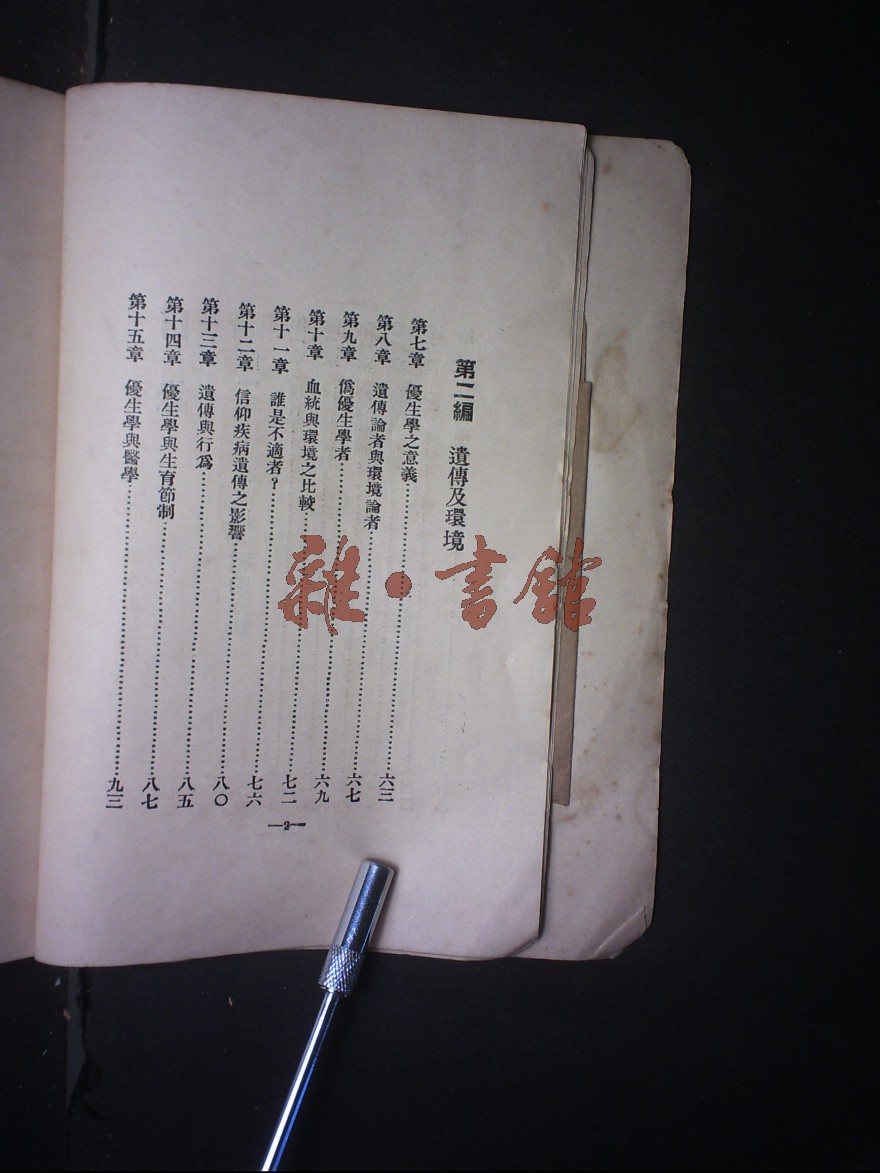 第二編　遺傳及環境
第七章　優生學之意義……六三
第八章　遺傳論者與環境論者……六七
第九章　僞優生學者……六九
第十章　血統與環境之比較……七二
第十一章　誰是不適者？……七六
第十二章　信仰疾病遺傳之影響……八〇
第十三章　遺傳與行爲……八五
第十四章　優生學與生育節制……八七
第十五章　優生學與醫學……九三
—2—
雜·書館